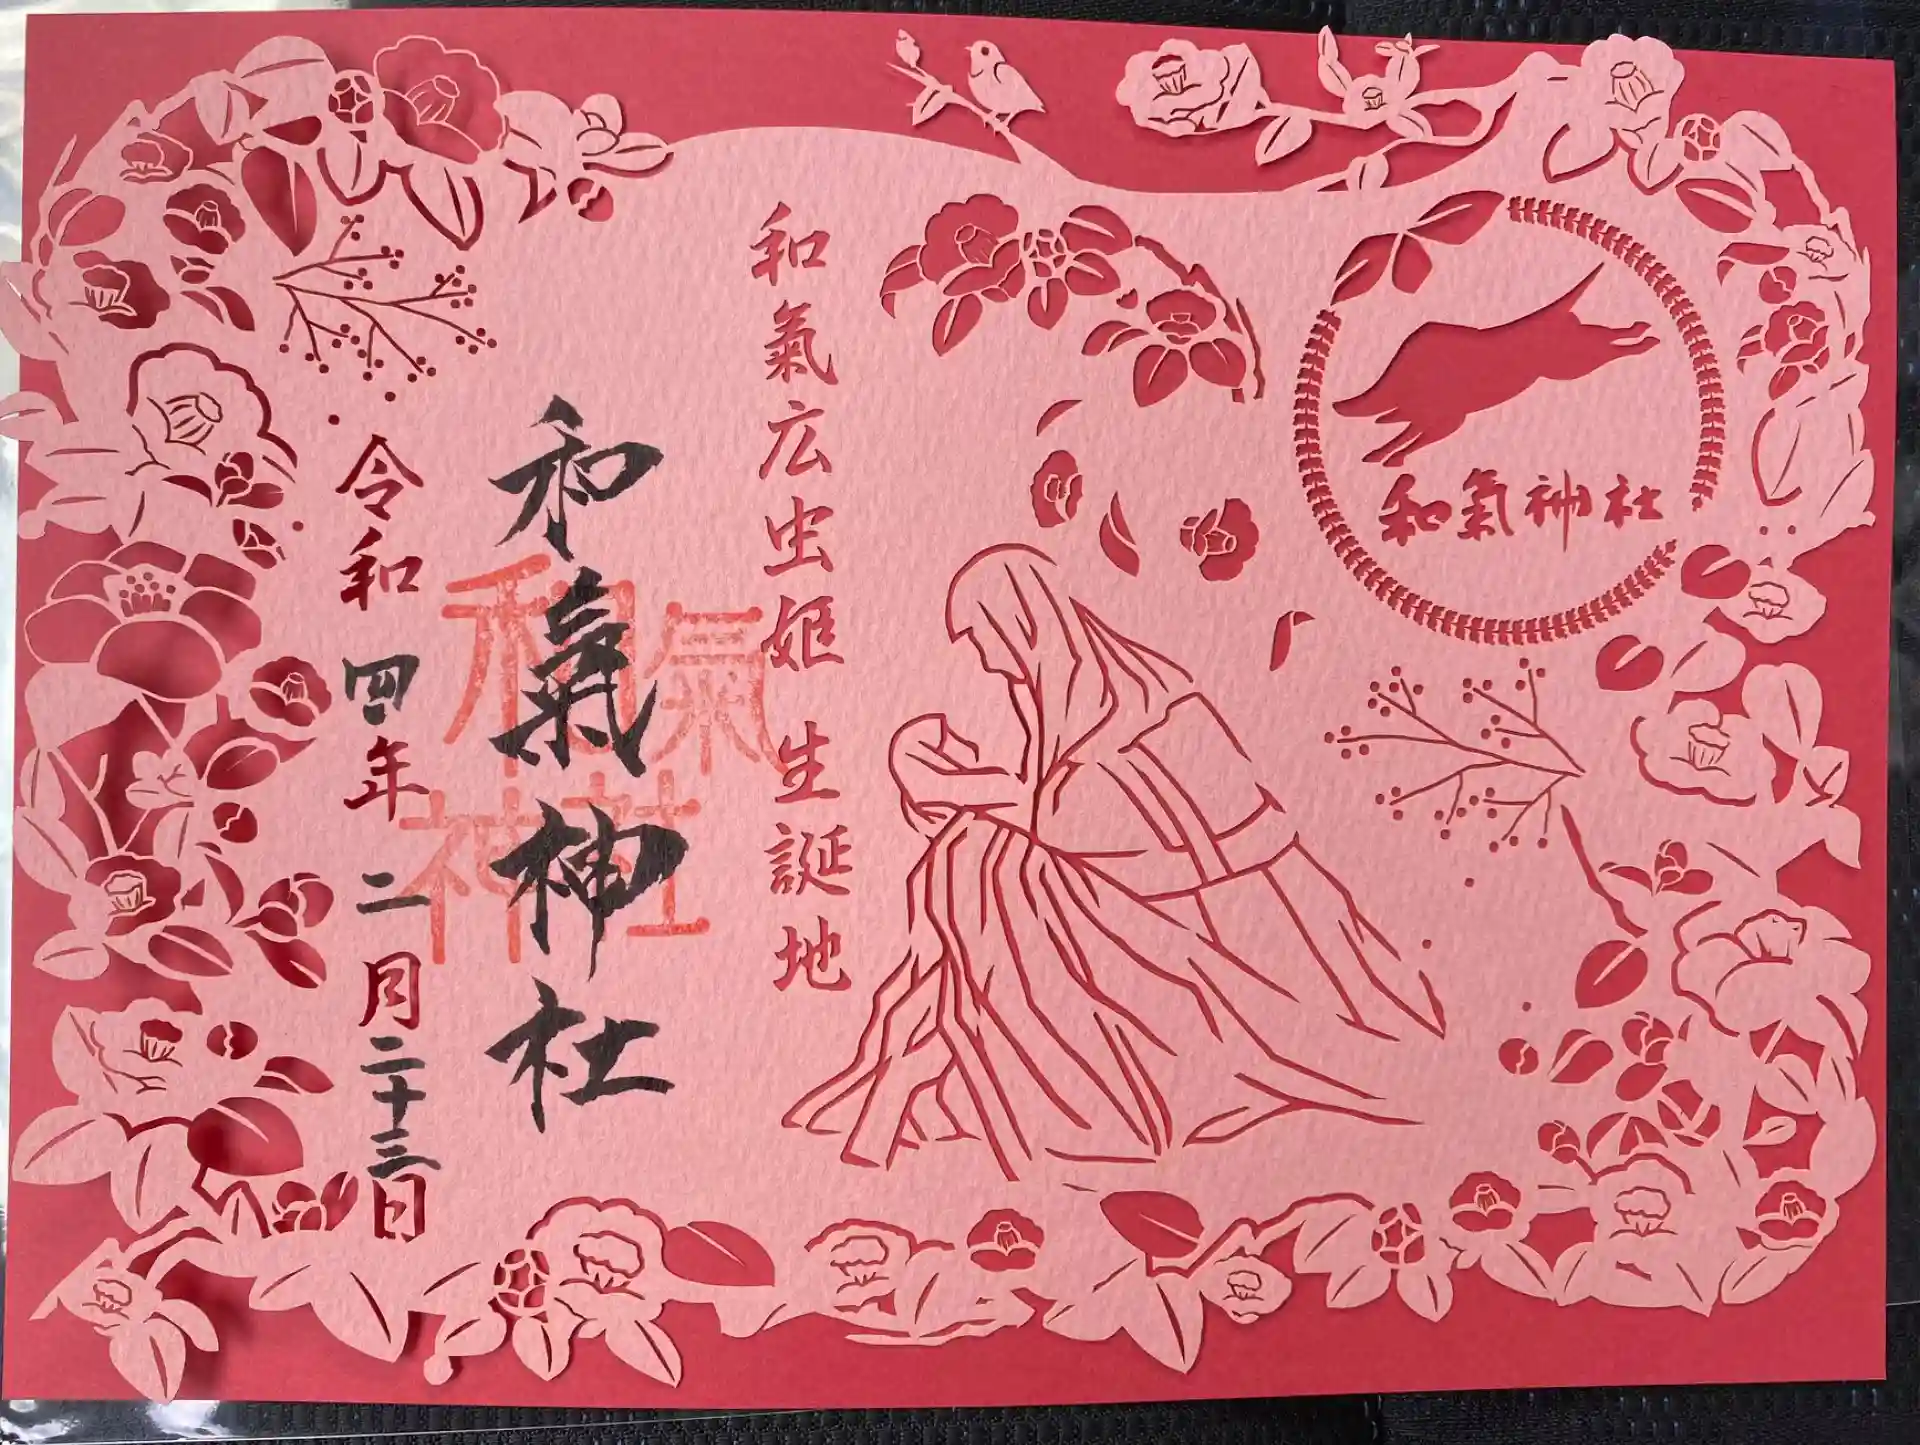 和氣神社
和氣広虫姫 生誕地
和氣神社
和氣
神社
令和 四年 二月二十三日